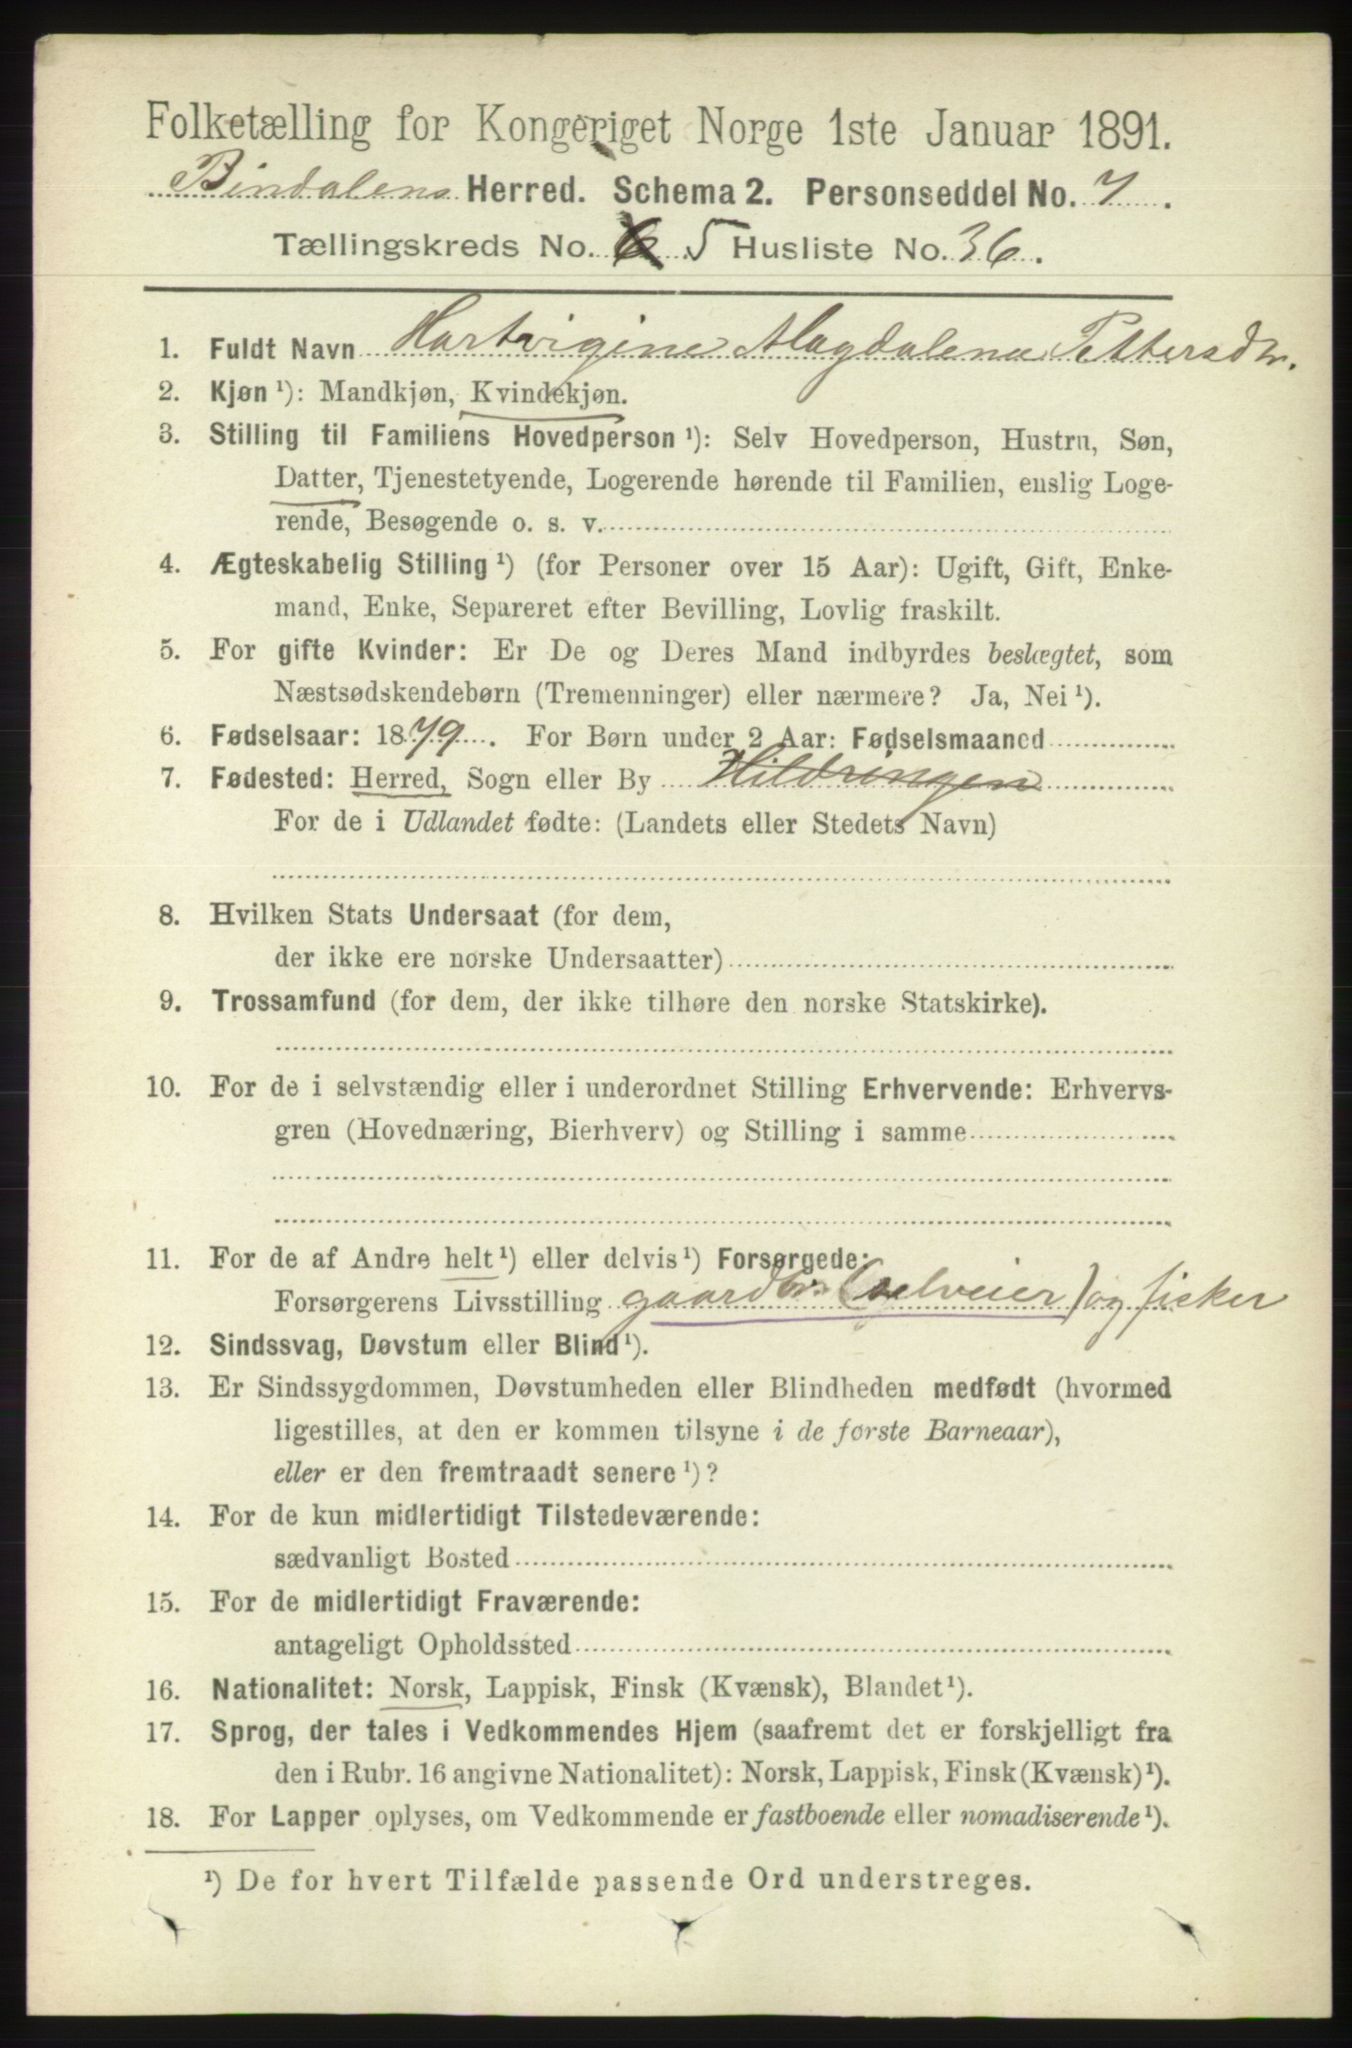 Folketælling for Kongeriget Norge 1ste Januar 1891.
Bindalens Herred. Schema 2. Personseddel No. 7.
Tællingskreds No. 6 5 Husliste No. 36.
1. Fuldt Navn Hartvigine Magdalena Pettersdtr.
2. Kjøn ¹): Mandkjøn, Kvindekjøn.
3. Stilling til Familiens Hovedperson ¹): Selv Hovedperson, Hustru, Søn,
Datter, Tjenestetyende, Logerende hørende til Familien, enslig Loge-
rende, Besøgende o. s. v.
4. Ægteskabelig Stilling ¹) (for Personer over 15 Aar): Ugift, Gift, Enke-
mand, Enke, Separeret efter Bevilling, Lovlig fraskilt.
5. For gifte Kvinder: Er De og Deres Mand indbyrdes beslægtet, som
Næstsødskendebørn (Tremenninger) eller nærmere? Ja, Nei ¹).
6. Fødselsaar: 1879. For Børn under 2 Aar: Fødselsmaaned
7. Fødested: Herred, Sogn eller By Hildringen
For de i Udlandet fødte: (Landets eller Stedets Navn)
8. Hvilken Stats Undersaat (for dem,
der ikke ere norske Undersaatter)
9. Trossamfund (for dem, der ikke tilhøre den norske Statskirke).
10. For de i selvstændig eller i underordnet Stilling Erhvervende: Erhvervs-
gren (Hovednæring, Bierhverv) og Stilling i samme
11. For de af Andre helt ¹) eller delvis ¹) Forsørgede:
Forsørgerens Livsstilling gaardbr. (selveier) og fisker
12. Sindssvag, Døvstum eller Blind ¹).
13. Er Sindssygdommen, Døvstumheden eller Blindheden medfødt (hvormed
ligestilles, at den er kommen tilsyne i de første Barneaar),
eller er den fremtraadt senere ¹)?
14. For de kun midlertidigt Tilstedeværende:
sædvanligt Bosted
15. For de midlertidigt Fraværende:
antageligt Opholdssted
16. Nationalitet: Norsk, Lappisk, Finsk (Kvænsk), Blandet ¹).
17. Sprog, der tales i Vedkommendes Hjem (saafremt det er forskjelligt fra
den i Rubr. 16 angivne Nationalitet): Norsk, Lappisk, Finsk (Kvænsk) ¹).
18. For Lapper oplyses, om Vedkommende er fastboende eller nomadiserende ¹).
¹) De for hvert Tilfælde passende Ord understreges.